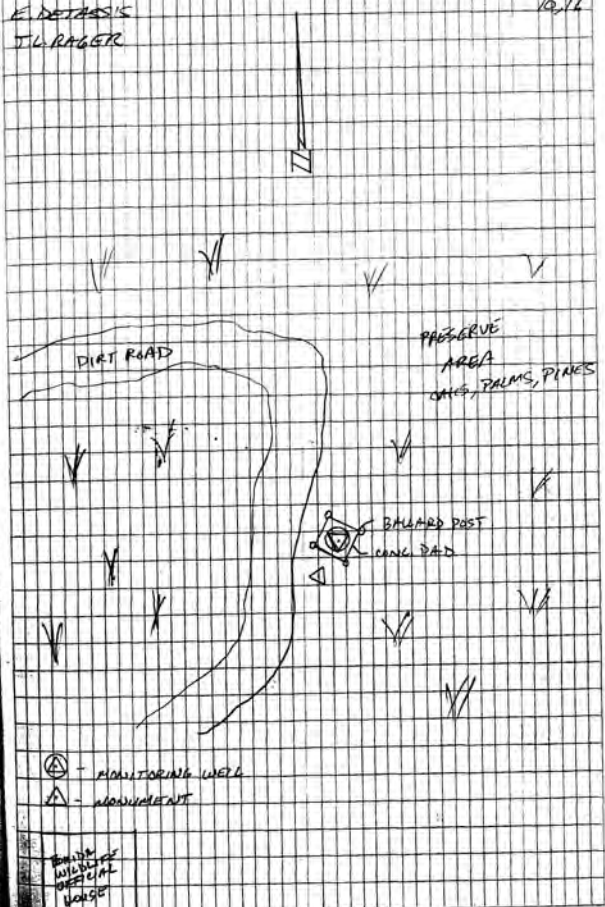 E. DETASSIS
T.L. RAGER
10,16
DIRT ROAD
PRESERVE
AREA
OAKS, PALMS, PINES
BALLARD POST
CONC. PAD
- MONITORING WELL
- MONUMENT
FLORIDA
WILDLIFE
OFFICIAL
HOUSE